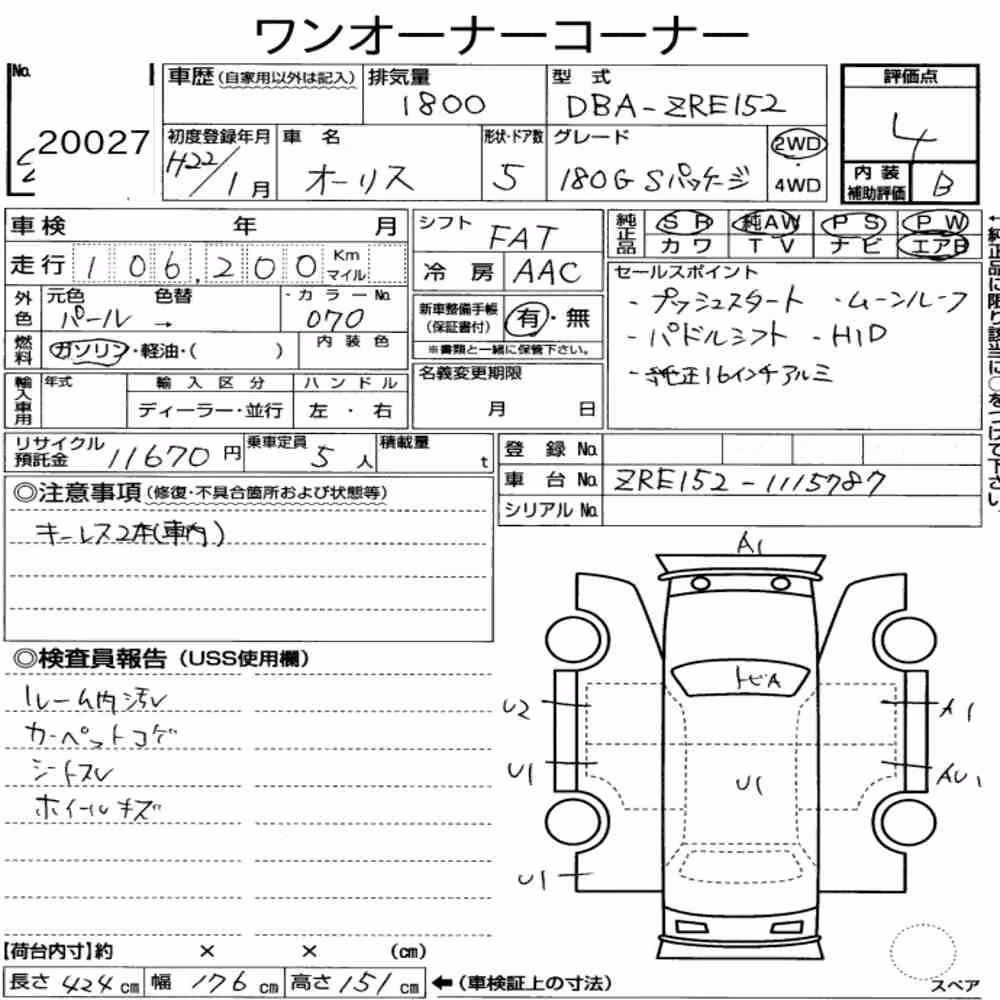 ワンオーナーコーナー
No. 20027
車歴 (自家用以外は記入)
排気量 1800
型式 DBA-ZRE152
評価点 4
初度登録年月 H22/1月
車名 オーリス
形状・ドア数 5
グレード 180G Sパッケージ
2WD・4WD
内装補助評価 B
車検 年 月
走行 106,200 Km マイル
シフト FAT
冷房 AAC
純正品 SR 純AW PS PW
カワ TV ナビ エアB
←純正品に限り該当に○をつけて下さい。
外色 元色 パール → 色替
・カラーNo. 070
新車整備手帳(保証書付) 有・無
※書類と一緒に保管下さい。
セールスポイント
・プッシュスタート ・ムーンルーフ
・パドルシフト ・HID
・純正16インチアルミ
燃料 ガソリン・軽油・( )
内装色
輸入車用 年式
輸入区分 ディーラー・並行
ハンドル 左・右
名義変更期限 月 日
リサイクル預託金 11670円
乗車定員 5人
積載量 t
登録No.
車台No. ZRE152-1115787
シリアルNo.
◎注意事項(修復・不具合箇所および状態等)
キーレス2本(車内)
◎検査員報告(USS使用欄)
ルーム内汚レ
カーペットコゲ
シートスレ
ホイールキズ
A1
トビA
U2
A1
U1
U1
AU1
U1
【荷台内寸】約 × × (cm)
長さ 424cm 幅 176cm 高さ 151cm ←(車検証上の寸法)
スペア